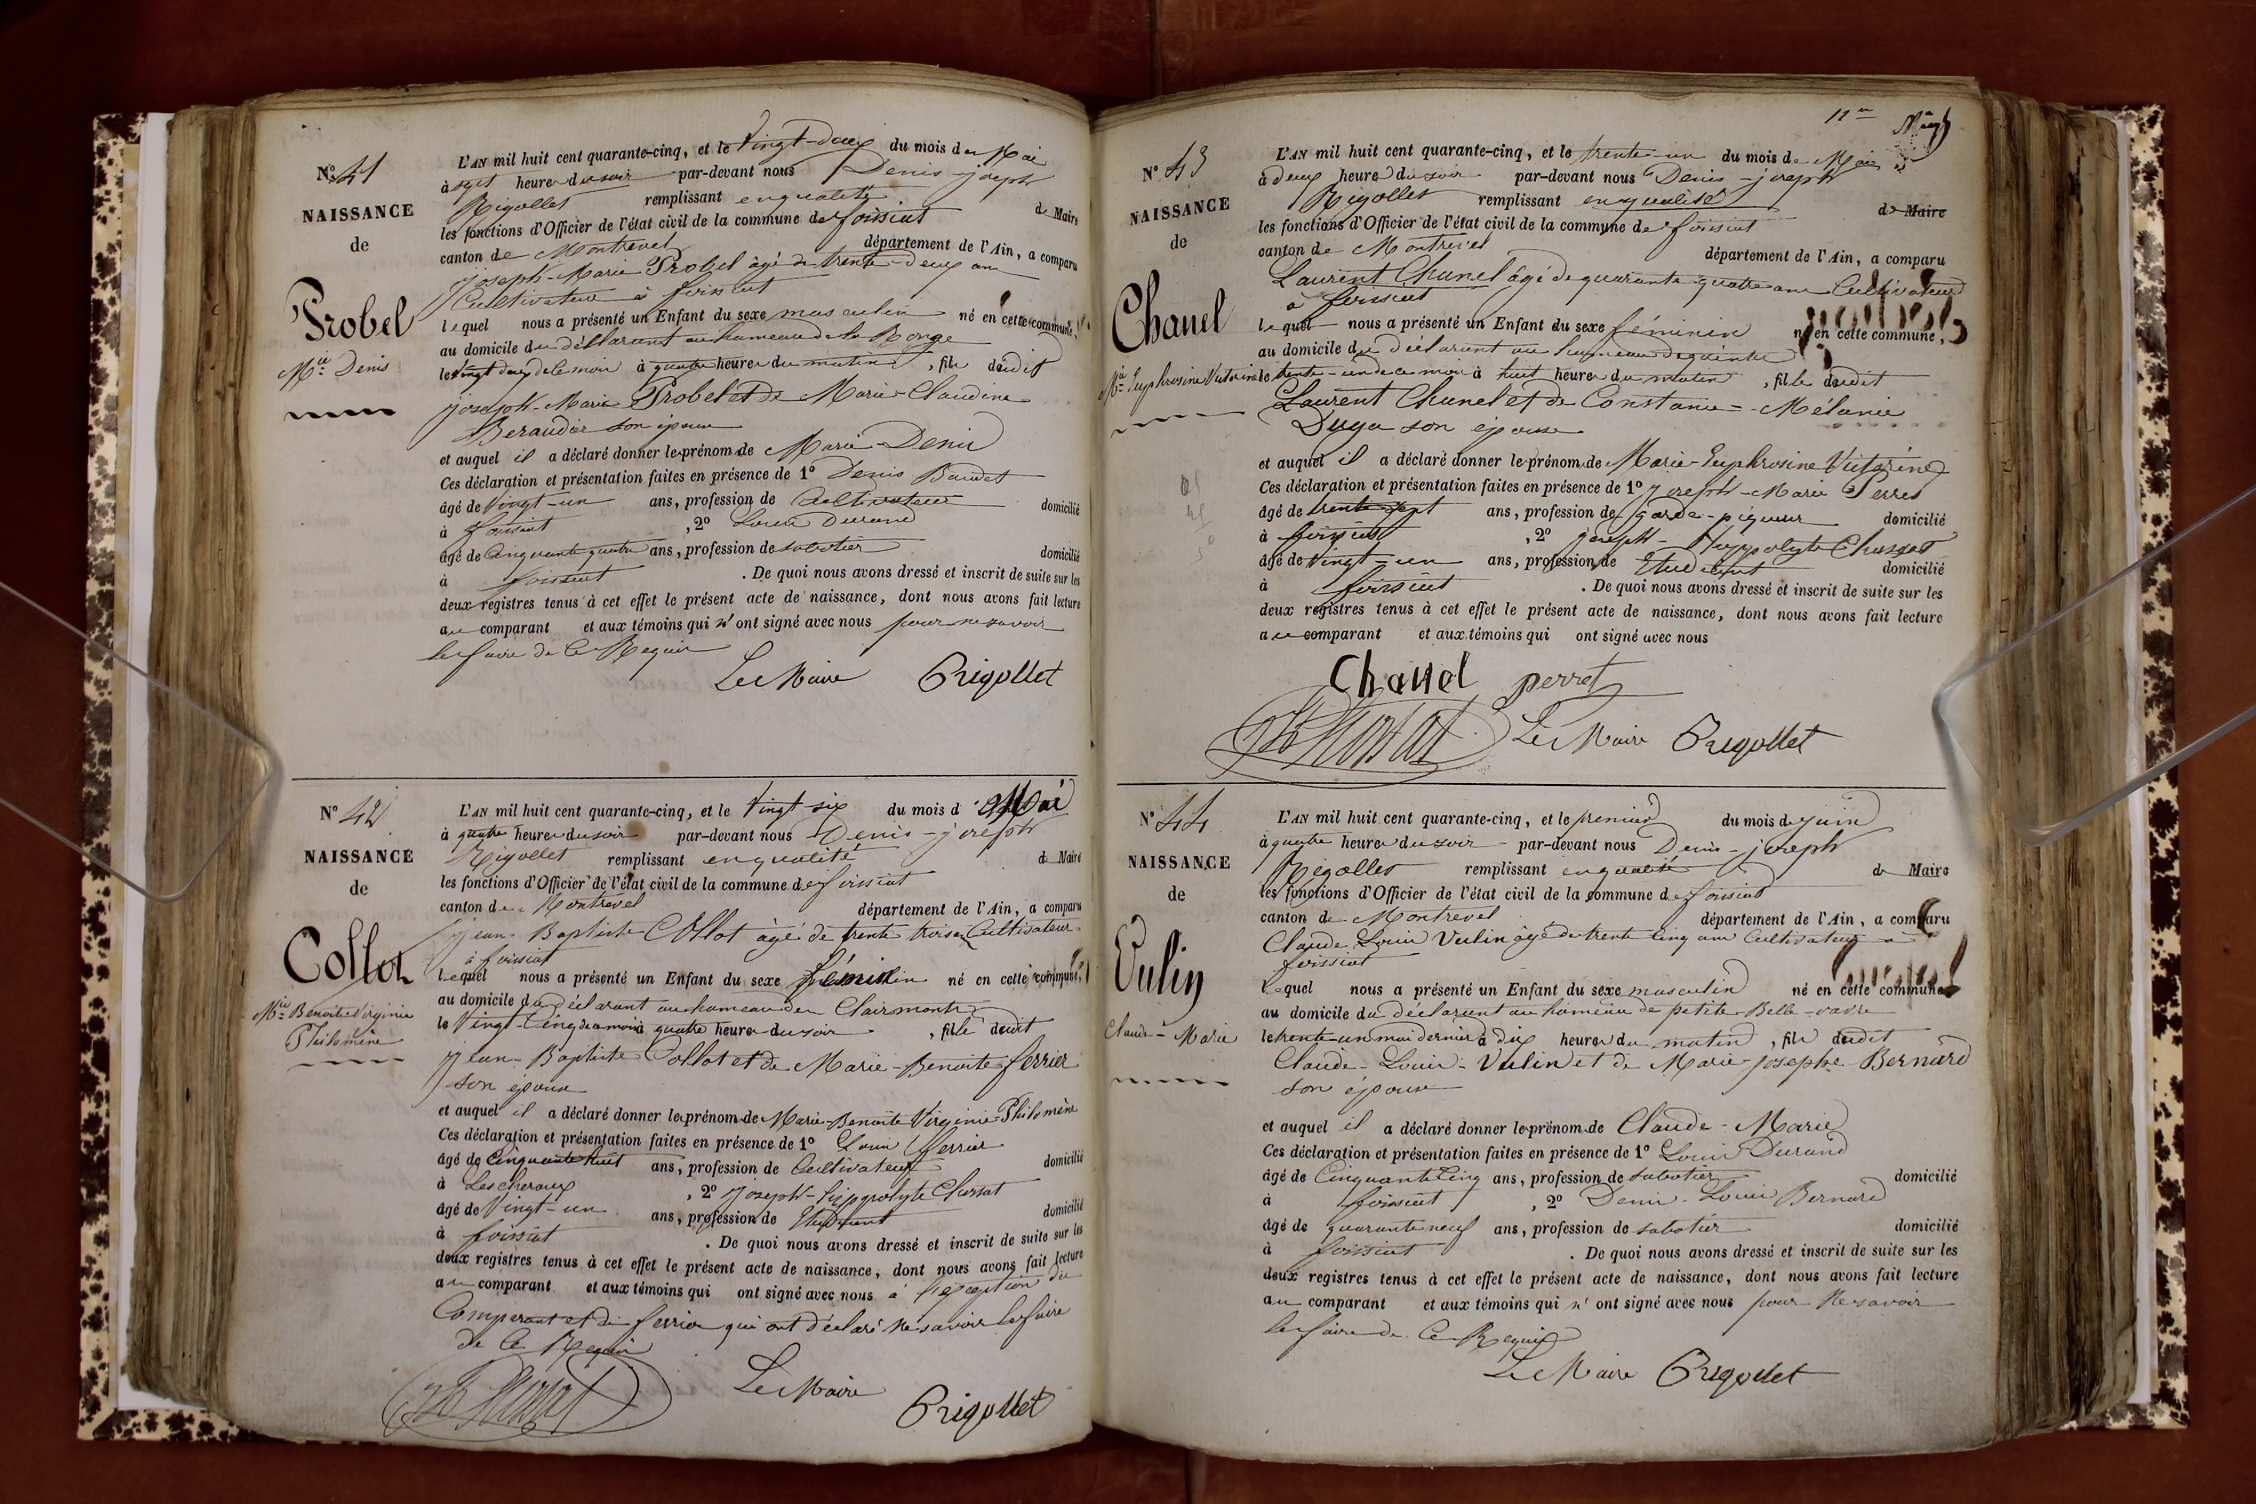 N° 41
NAISSANCE
de
Probel
Mie Denis
L'AN mil huit cent quarante-cinq, et le vingt-deux du mois de Mai
à sept heures du soir par-devant nous Denis-joseph
Rigollet remplissant en qualité de Maire
les fonctions d'Officier de l'état civil de la commune de foissiat
canton de Montrevel département de l'Ain, a comparu
joseph-Marie Probel âgé de trente-deux ans
Cultivateur à foissiat
lequel nous a présenté un Enfant du sexe masculin né en cette commune,
au domicile du déclarant au hameau de la Ronge
le vingt deux de ce mois à quatre heures du matin, fils dudit
joseph-Marie Probel et de Marie-Claudine
Beraudier son épouse
et auquel il a déclaré donner les prénoms de Marie-Denis
Ces déclaration et présentation faites en présence de 1° Denis Baudet
âgé de vingt-un ans, profession de Cultivateur domicilié
à foissiat, 2° Louis Durand
âgé de Cinquante quatre ans, profession de sabotier domicilié
à foissiat. De quoi nous avons dressé et inscrit de suite sur les
deux registres tenus à cet effet le présent acte de naissance, dont nous avons fait lecture
au comparant et aux témoins qui n'ont signé avec nous pour ne savoir
le faire de ce Requis
Le Maire Drigollet
N° 42
NAISSANCE
de
Collot
Mie Benoite Virginie
Philomène
L'AN mil huit cent quarante-cinq, et le vingt-six du mois d Mai
à quatre heures du soir par-devant nous Denis-joseph
Rigollet remplissant en qualité de Maire
les fonctions d'Officier de l'état civil de la commune de foissiat
canton de Montrevel département de l'Ain, a comparu
jean-Baptiste Collot âgé de trente trois ans Cultivateur
à foissiat
lequel nous a présenté un Enfant du sexe féminin né en cette commune,
au domicile du déclarant au hameau de Clairmonte
le Vingt-Cinq de ce mois à quatre heures du soir, fille dudit
jean-Baptiste Collot et de Marie-Benoite ferrier
son épouse
et auquel il a déclaré donner les prénoms de Marie-Benoite Virginie-Philomène
Ces déclaration et présentation faites en présence de 1° Louis ferrier
âgé de Cinquante huit ans, profession de Cultivateur domicilié
à Lescheroux, 2° joseph-hippolyte Chossat
âgé de Vingt-un ans, profession de Etudiant domicilié
à foissiat. De quoi nous avons dressé et inscrit de suite sur les
deux registres tenus à cet effet le présent acte de naissance, dont nous avons fait lecture
au comparant et aux témoins qui ont signé avec nous à l'exception du
Comparant et de ferrier qui ont déclaré ne savoir le faire
de ce Requis
Le Maire
Drigollet
11
N° 43
NAISSANCE
de
Chanel
Mie Euphrosine Victorine
L'AN mil huit cent quarante-cinq, et le trente-un du mois de Mai
à deux heures du soir par-devant nous Denis-joseph
Rigollet remplissant en qualité de Maire
les fonctions d'Officier de l'état civil de la commune de foissiat
canton de Montrevel département de l'Ain, a comparu
Laurent Chanel âgé de quarante-quatre ans Cultivateur
à foissiat
lequel nous a présenté un Enfant du sexe féminin né en cette commune,
au domicile du déclarant au hameau
le trente-un de ce mois à huit heures du matin, fille dudit
Laurent Chanel et de Constance-Mélanie
Duga son épouse
et auquel il a déclaré donner les prénoms de Marie-Euphrosine Victorine
Ces déclaration et présentation faites en présence de 1° joseph-Marie Perret
âgé de trente sept ans, profession de garde-piqueur domicilié
à foissiat, 2° joseph-hyppolyte Chossat
âgé de Vingt-un ans, profession de Etudiant domicilié
à foissiat. De quoi nous avons dressé et inscrit de suite sur les
deux registres tenus à cet effet le présent acte de naissance, dont nous avons fait lecture
au comparant et aux témoins qui ont signé avec nous
Chanel perret
Le Maire Drigollet
N° 44
NAISSANCE
de
Vulin
Claude-Marie
L'AN mil huit cent quarante-cinq, et le premier du mois de juin
à quatre heures du soir par-devant nous Denis-joseph
Rigollet remplissant en qualité de Maire
les fonctions d'Officier de l'état civil de la commune de foissiat
canton de Montrevel département de l'Ain, a comparu
Claude Louis Vulin âgé de trente Cinq ans Cultivateur à
foissiat
lequel nous a présenté un Enfant du sexe masculin né en cette commune
au domicile du déclarant au hameau de petite Belle-vavre
le trente-un mai dernier à dix heures du matin, fils dudit
Claude-Louis-Vulin et de Marie-josephe Bernard
son épouse
et auquel il a déclaré donner les prénoms de Claude-Marie
Ces déclaration et présentation faites en présence de 1° Louis Durand
âgé de Cinquante Cinq ans, profession de sabotier domicilié
à foissiat, 2° Denis-Louis Bernard
âgé de quarante neuf ans, profession de sabotier domicilié
à foissiat. De quoi nous avons dressé et inscrit de suite sur les
deux registres tenus à cet effet le présent acte de naissance, dont nous avons fait lecture
au comparant et aux témoins qui n'ont signé avec nous pour ne savoir
le faire de ce Requis
Le Maire Drigollet